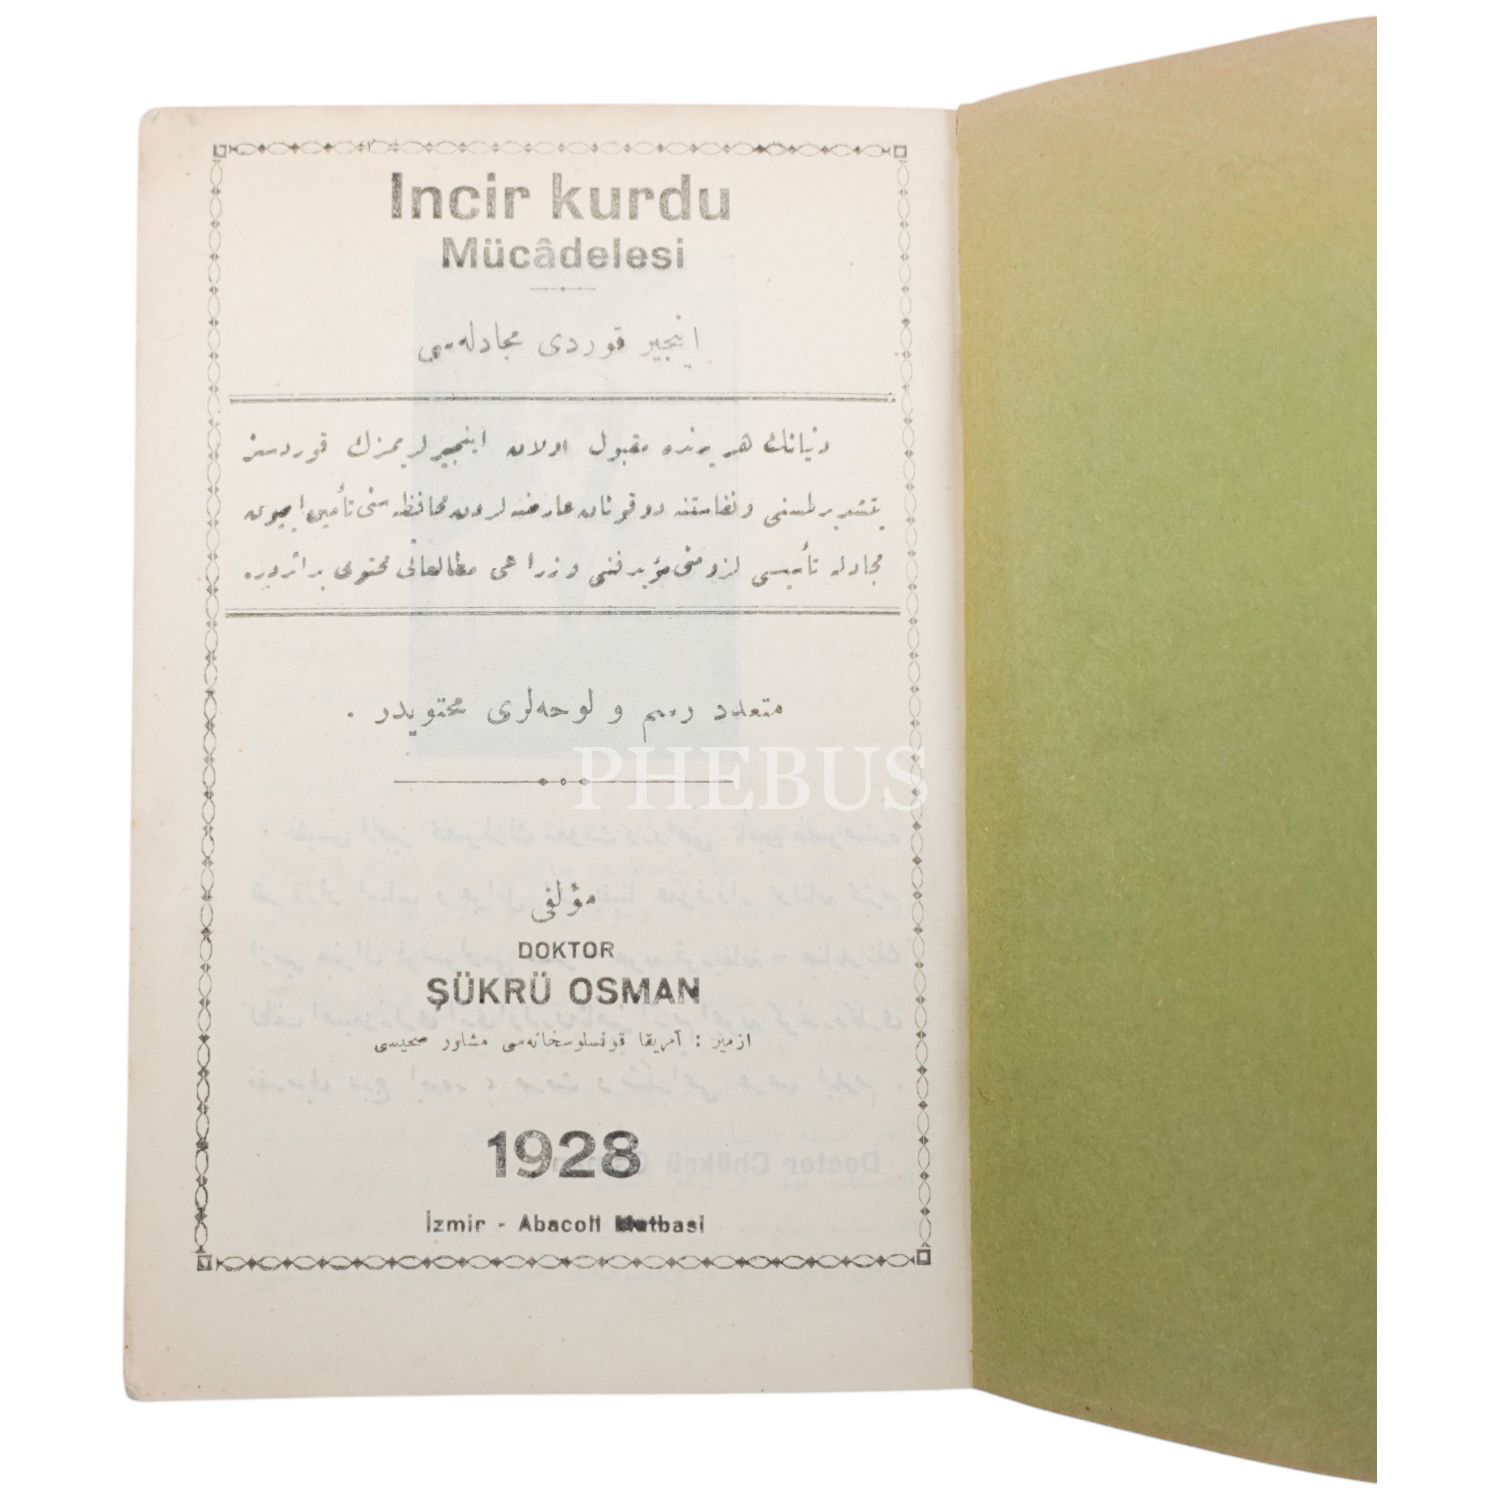 Incir kurdu
Mücâdelesi
اینجیر قوردی مجادله‌سی
دنیانك هر یرنده مقبول اولان اینجیر لریمزك قوردسز
یتشدیرلمسنی و نفاستنه دوقونان عارضه لردن محافظه سنی تأمین ایچون
مجادله تأسیسی لزومنی مؤید فنی و زراعی مطالعاتی محتوی بر اثردر.
متعدد رسم و لوحه‌لری محتویدر .
PHEBUS
مؤلفی
DOKTOR
ŞÜKRÜ OSMAN
ازمیر : آمریقا قونسلوسخانه‌سی مشاور صحیسی
1928
İzmir - Abacoli Matbasi